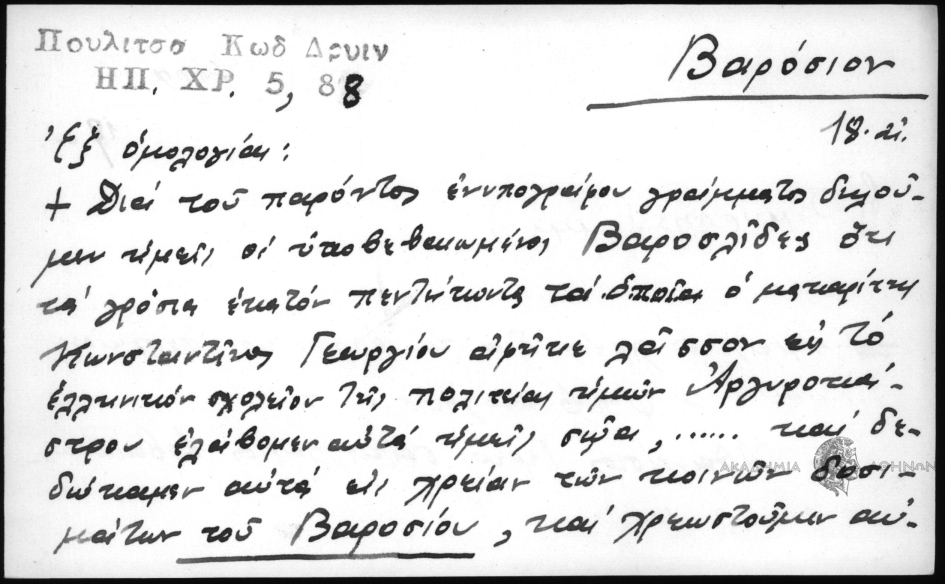 Πουλιτσα Κωδ Δρυιν
ΗΠ. ΧΡ. 5, 88
Βαρόσιον
18. αἰ.
Ἐξ ὁμολογίας:
+ Διά τοῦ παρόντος ἐνυπογράφου γράμματος δηλοῦ-
μεν ἡμεῖς οἱ ὑποβεβαιωμένοι Βαροσλίδες ὅτι
τά γρόσια ἑκατόν πενήντα τά ὁποῖα ὁ μακαρίτης
Κωνσταντῖνος Γεωργίου ἀφῆκε λάσσον εἰς τό
ἑλληνικόν σχολεῖον τῆς πολιτείας ἡμῶν Ἀργυροκά-
στρου ἐλάβομεν αὐτά ἡμεῖς σῶα, ...... καί δε-
δώκαμεν αὐτά εἰς χρείαν τῶν κοινῶν δοσι-
μάτων τοῦ Βαροσίου, καί χρεωστοῦμεν αὐ-
ΑΚΑΔΗΜΙΑ ΑΘΗΝΩΝ